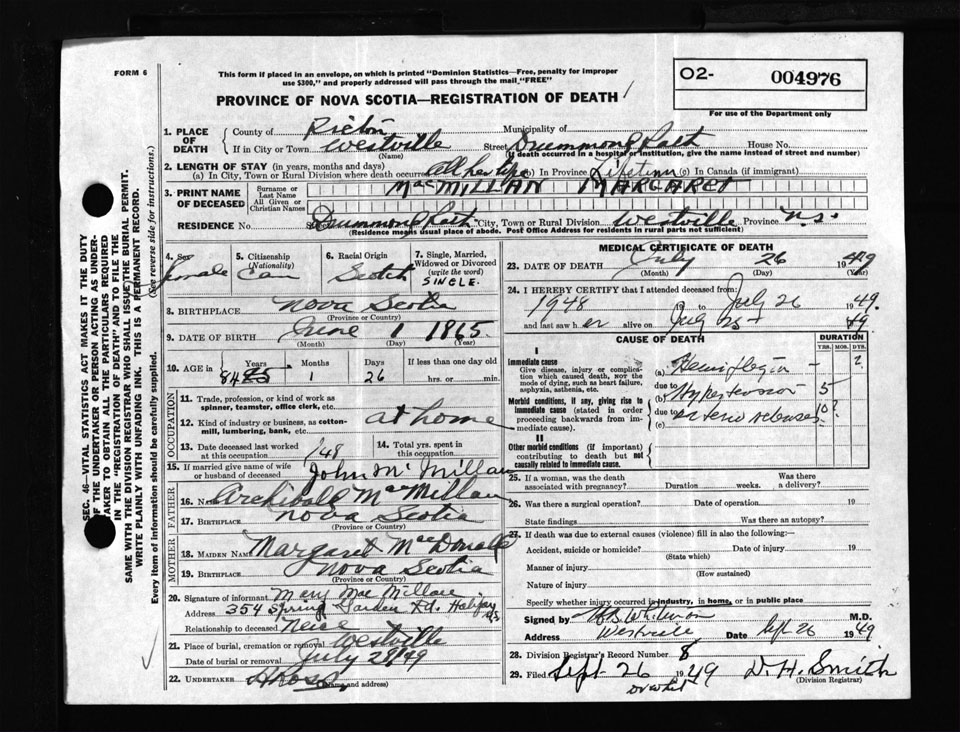 FORM 6
This form if placed in an envelope, on which is printed "Dominion Statistics—Free, penalty for improper
use $300," and properly addressed will pass through the mail "FREE"
PROVINCE OF NOVA SCOTIA—REGISTRATION OF DEATH
O2- 004976
For use of the Department only
SEC. 46—VITAL STATISTICS ACT MAKES IT THE DUTY
OF THE UNDERTAKER OR PERSON ACTING AS UNDER-
TAKER TO OBTAIN ALL THE PARTICULARS REQUIRED
IN THE "REGISTRATION OF DEATH" AND TO FILE THE
SAME WITH THE DIVISION REGISTRAR WHO SHALL ISSUE THE BURIAL PERMIT.
WRITE PLAINLY WITH UNFADING INK. THIS IS A PERMANENT RECORD.
Every item of information should be carefully supplied. (See reverse side for instructions.)
1. PLACE OF DEATH
County of Pictou Municipality of
If in City or Town Westville Street Drummond Road House No.
(Name) (If death occurred in a hospital or institution, give the name instead of street and number)
2. LENGTH OF STAY (in years, months and days)
(a) In City, Town or Rural Division where death occurred all her life (b) In Province Lifetime (c) In Canada (if immigrant)
3. PRINT NAME OF DECEASED
Surname or Last Name MacMILLAN MARGARET
All Given or Christian Names
RESIDENCE No. Drummond Road City, Town or Rural Division Westville Province N.S.
(Residence means usual place of abode. Post Office Address for residents in rural parts not sufficient)
4. Sex female
5. Citizenship (Nationality) Can
6. Racial Origin Scotch
7. Single, Married, Widowed or Divorced (write the word) SINGLE.
8. BIRTHPLACE Nova Scotia
(Province or Country)
9. DATE OF BIRTH June 1 1865
(Month) (Day) (Year)
10. AGE in Years 84 Months 1 Days 26 If less than one day old hrs. or min.
OCCUPATION
11. Trade, profession, or kind of work as spinner, teamster, office clerk, etc.
12. Kind of industry or business, as cotton-mill, lumbering, bank, etc. at home
13. Date deceased last worked at this occupation /48
14. Total yrs. spent in this occupation
15. If married give name of wife or husband of deceased John McMillan
FATHER
16. Name Archibald MacMillan
17. BIRTHPLACE Nova Scotia
(Province or Country)
MOTHER
18. MAIDEN NAME Margaret MacDonald
19. BIRTHPLACE Nova Scotia
(Province or Country)
20. Signature of informant Mary MacMillan
Address 354 Spring Garden Rd. Halifax NS
Relationship to deceased Neice
21. Place of burial, cremation or removal Westville
Date of burial or removal July 28/49
22. UNDERTAKER H Ross
(Name and address)
MEDICAL CERTIFICATE OF DEATH
23. DATE OF DEATH July 26 1949
(Month) (Day) (Year)
24. I HEREBY CERTIFY that I attended deceased from:
1948 to July 26 1949.
and last saw her alive on July 25 1949
CAUSE OF DEATH DURATION
YRS. MOS. DYS.
I
Immediate cause
Give disease, injury or complication which caused death, not the mode of dying, such as heart failure, asphyxia, asthenia, etc.
(a) Hemiplegia - ?
due to
Morbid conditions, if any, giving rise to immediate cause (stated in order proceeding backwards from immediate cause).
(b) Hypertension 5
due to
(c) arterio sclerosis 10 ?
II
Other morbid conditions (if important) contributing to death but not causally related to immediate cause.
25. If a woman, was the death associated with pregnancy? Duration weeks. Was there a delivery?
26. Was there a surgical operation? Date of operation 19
State findings Was there an autopsy?
27. If death was due to external causes (violence) fill in also the following:—
Accident, suicide or homicide? Date of injury 19
(State which)
Manner of injury
(How sustained)
Nature of injury
Specify whether injury occurred in industry, in home, or in public place
Signed by M.D.
Address Westville Date Sept 26 1949
28. Division Registrar's Record Number 8
29. Filed Sept 26 1949 D. H. Smith
(Division Registrar)